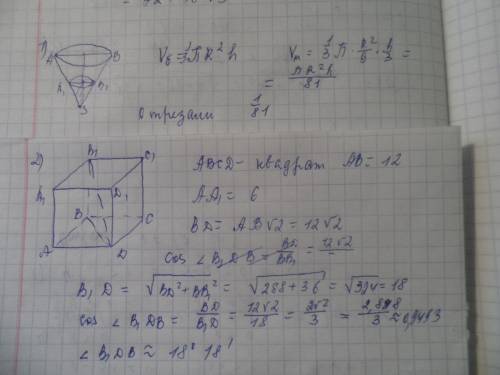 1) A B A₁ B₁ S
V_б = 1/3 πR²h V_м = 1/3 π · R²/9 · h/3 =
= πR²h/81
Отрезали 1/81
2) A B C D A₁ B₁ C₁ D₁
ABCD - квадрат AB = 12
AA₁ = 6
BD = AB√2 = 12√2
cos ∠B₁DB = BD/BB₁ = 12√2/
B₁D = √(BD² + BB₁²) = √(288 + 36) = √324 = 18
cos ∠B₁DB = BD/B₁D = 12√2/18 = 2√2/3 =
∠B₁DB ≈ 18° 18'